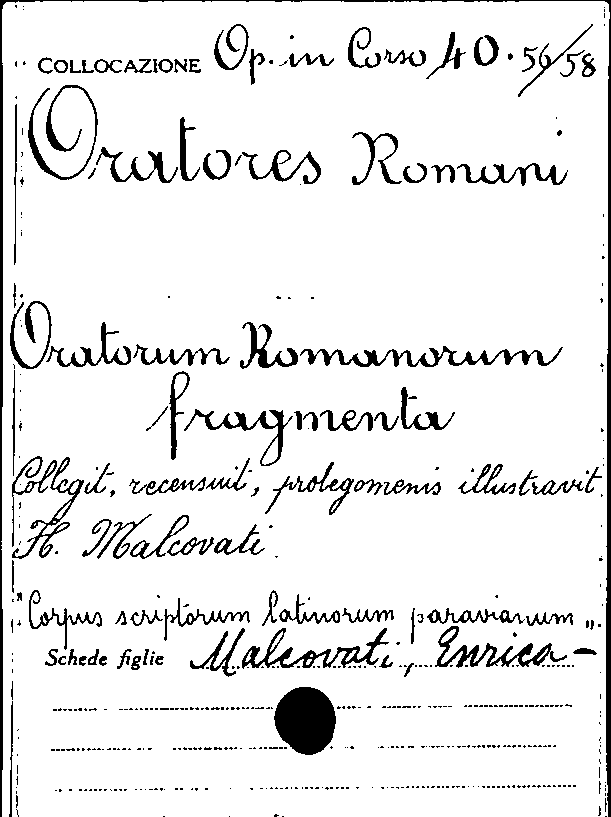 COLLOCAZIONE Op. in Corso 40.56/58
Oratores Romani
Oratorum Romanorum
fragmenta
Collegit, recensuit, prolegomenis illustravit
H. Malcovati
"Corpus scriptorum latinorum paravianum".
Schede figlie Malcovati, Enrica -